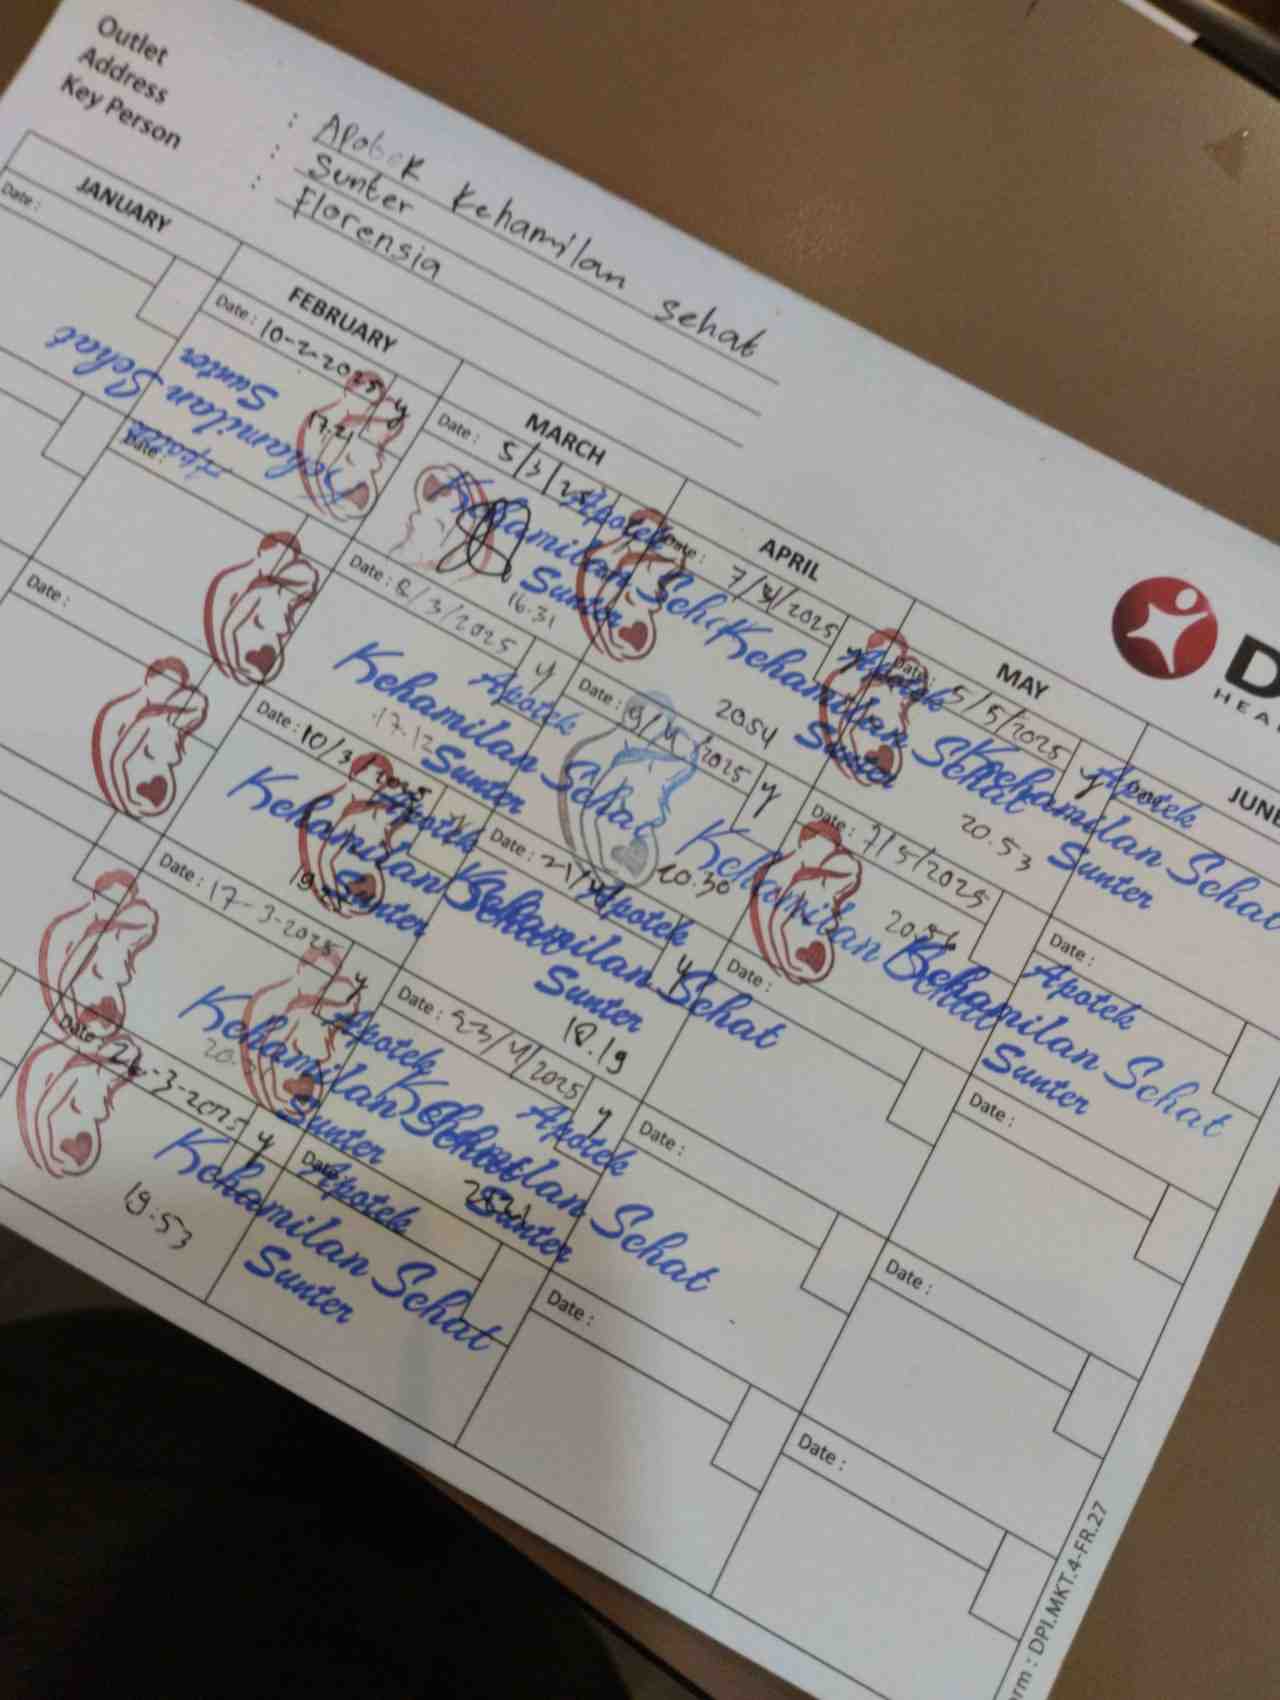 Outlet : Apotek Kehamilan Sehat
Address : Sunter
Key Person : Florensia
JANUARY
FEBRUARY
MARCH
APRIL
MAY
JUNE
Date :
Date : 10-2-2025 y
17.21
Apotek
Kehamilan Sehat
Sunter
Date : 5/3/25
16.31
Apotek
Kehamilan Sehat
Sunter
Date : 7/4/2025 y
20.54
Apotek
Kehamilan Sehat
Sunter
Date : 5/5/2025 y
20.53
Apotek
Kehamilan Sehat
Sunter
Date :
Date : 8/3/2025 y
17.12
Apotek
Kehamilan Sehat
Sunter
Date : 9/4/2025 y
20.30
Kehamilan Sehat
Date : 7/5/2025
20.56
Apotek
Kehamilan Sehat
Sunter
Date :
Date :
Date : 10/3/2025
Apotek
Kehamilan Sehat
Sunter
Date : 21/4
18.19
Apotek
Kehamilan Sehat
Sunter
Date :
Date :
Date : 17-3-2025 y
Apotek
Kehamilan Sehat
Sunter
Date : 23/4/2025 y
Apotek
Kehamilan Sehat
Sunter
Date :
Date :
Date : 24-3-2025 y
19.53
Apotek
Kehamilan Sehat
Sunter
Date :
Date :
Date :
HEA
rm : DPI.MKT.4-FR.27